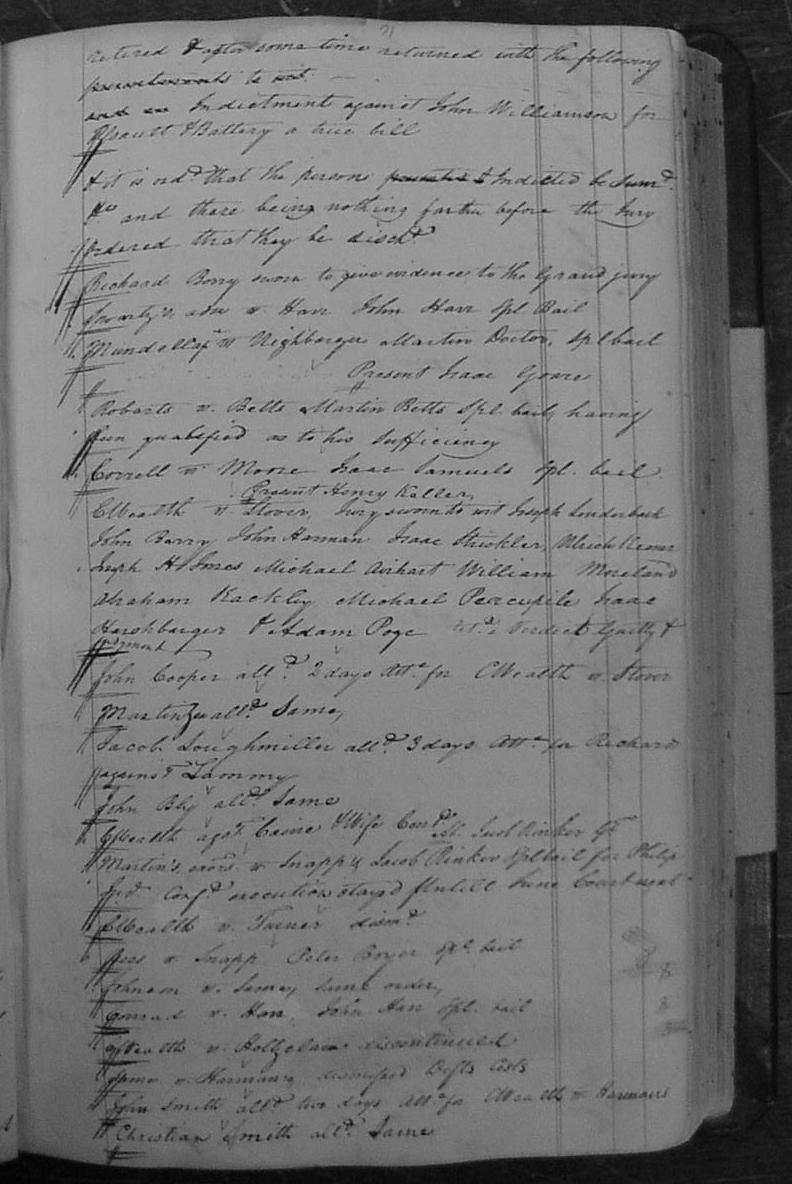 retired & after some time returned with the following
presentments to wit —
and an Indictment against John Williamson for
Assault & Battery a true bill
& it is ord.d that the persons presented & Indicted be Sum.d
&c and there being nothing farther before the Jury
Ordered that they be disch.d
Richard Berry sworn to give evidence to the Grand jury
v. Harr John Harr Spl Bail
v Nighbarger Martin Doctor, Spl bail
Present Isaac Gore
Roberts v. Betts Martin Betts Spl. bail, having
been qualified as to his Sufficiency
Correll v Moore Isaac Samuels Spl. bail.
Present Henry Keller,
CWealth v Stover, Jury sworn to wit Joseph Louderback
John Barry John Harman Isaac Strickler, Ulrich Keener
Joseph Holmes Michael Airhart William Moreland
Abraham Kackley Michael Percupile Isaac
Harshbarger & Adam Poge ret.d a Verdict Guilty &
Judgment
John Cooper all.d 2 days Att.e for CWealth v. Stover
Martin all.d Same,
Jacob Loughmiller all.d 3 days Att.e for Richard
against Tammy
John Bly all.d Same
CWealth ag.t Caine & Wife Con.d
Martin's exors. v Snapp & Jacob Rinker Spl bail for Philip
Jud. Conf.d execution stayed Untill June Court next
CWealth v. Turner dism.d
v Snapp Peter Boyer Spl. bail
Johnson v. Same, Same order,
Conrad v. Harr, John Harr Spl. bail
CWealth v Holtzclaw discontinued
Same v Harman, dismissed Defts Costs
John Smith all.d two days Att.e for CWealth v Harman
Christian Smith all.d Same